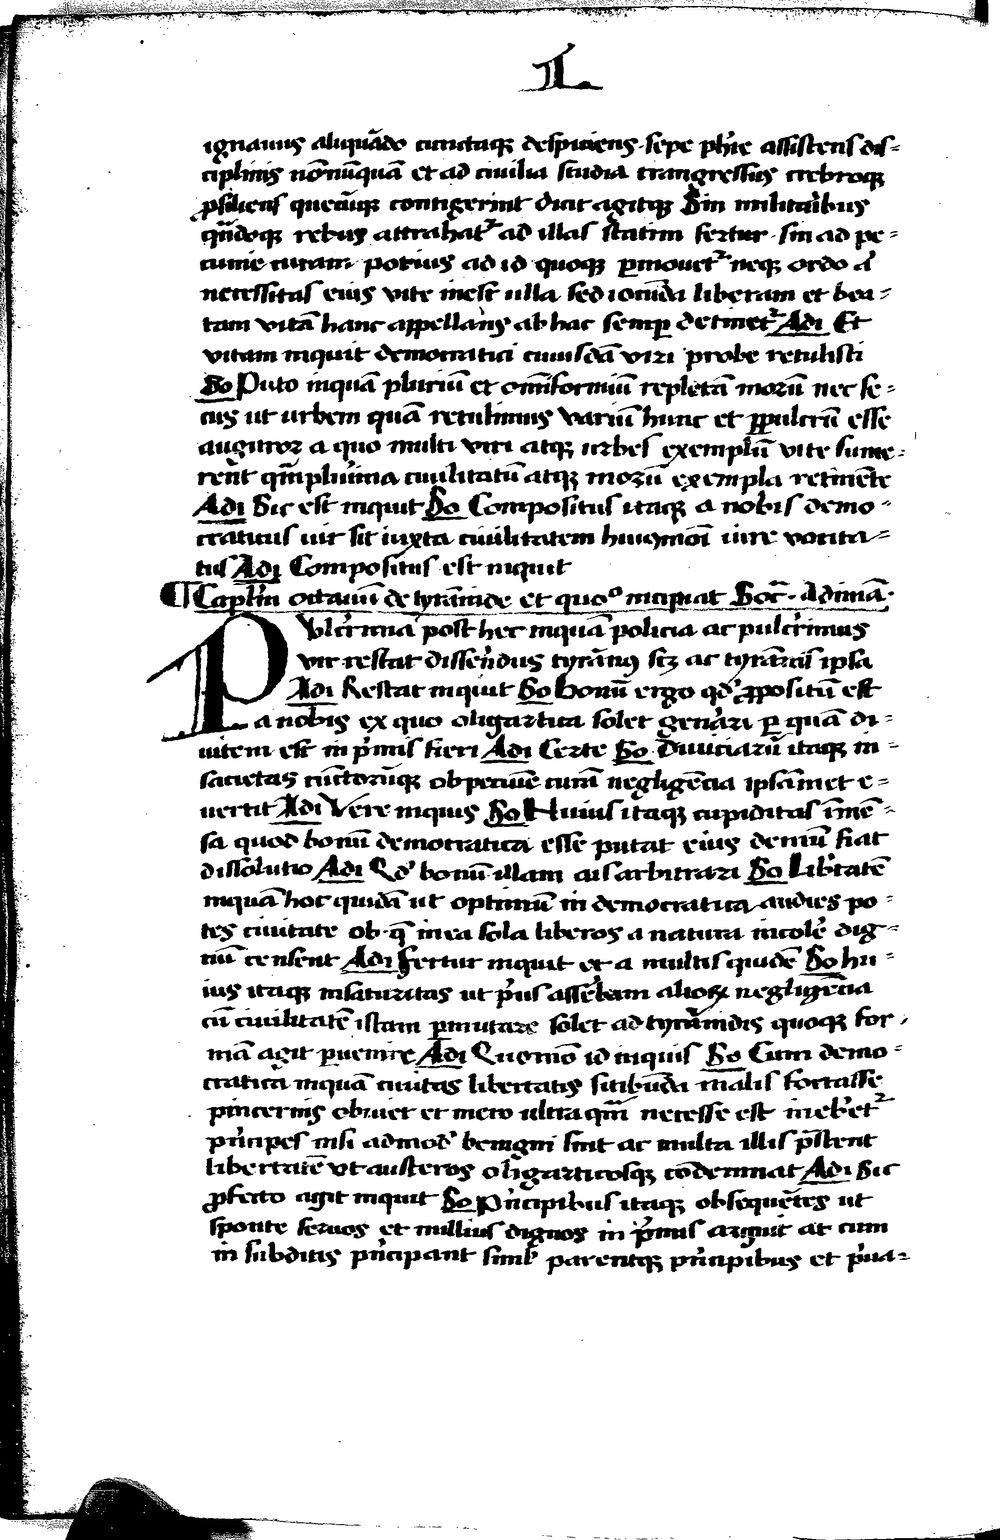 L
ignauus aliquādo cunctaqꝫ despiciens. sepe ph'ie assistens dis=
ciplinis nōnūquā et ad ciuilia studia trangressus crebroqꝫ
ꝓsiliens quecūqꝫ contigerint dicit agitqꝫ Sin militaribus
qn̄doqꝫ rebus attrahat᷑ ad illas statim fertur. sin ad pe=
cunie curam potius ad id quoqꝫ ꝑmouet᷑ neqꝫ ordo
necessitas eius vite inest ulla sed iocūda liberam et bea=
tam vitā hanc appellans ab hac semꝑ detinet᷑ Adi Et
vitam inquit democratici cuiusdā viri probe retulisti
So Puto inquā pluriū et omīformiū repletā morū nec se=
cus ut urbem quā retulimus variū hunc et ꝑpulcrū esse
auguror a quo multi viri atqꝫ urbes exemplū vite sume=
rent qm̄ plurima ciuilitatū atqꝫ morū exempla retinēte
Adi Sic est inquit So Compositus itaqꝫ a nobis demo=
craticus uir sit iuxta ciuilitatem huiusmōi iure vocita=
tus Adi Compositus est inquit
¶ Cap'lm octauū de tyrānide et quo° incipiat Soc̄. Adimā.
Pulcrrima post hec inquā policia ac pulcrrimus
vir restat disserēdus tyrānus scꝫ ac tyrānis ipsa
Adi Restat inquit So Bonū ergo qd' ꝓpositū est
a nobis ex quo oligartica solet gen'ari ꝑ quā di=
uitem est in p'mis fieri Adi Certe So Diuiciarū itaqꝫ in=
sacietas cūctorūqꝫ ob pecunie curā negligēcia ipsāmet e=
uertit Adi Vere inquis So Huius itaqꝫ cupiditas īmē=
sa quod bonū democratica esse putat eius demū fiat
dissolutio Adi Qd' bonū illam ais arbitrari So Lib'tatē
inquā hoc quidā ut optimū in democratica audies po=
tes ciuitate ob q̄ in ea sola liberos a natura incole' dig=
nū censent Adi Fertur inquit et a multis quidē So hu=
ius itaqꝫ insaturitas ut p'us asserebam alioꝝ negligēcia
cū ciuilitatē istam ꝑmutare solet ad tyrānidis quoqꝫ for=
mā agit ꝑuenire Adi Quomō id inquis So Cum demo=
cratica inquā ciuitas libertatis sitibūda malis fortasse
pincernis obuiet et mero ultra qm̄ necesse est inebriet᷑
p'ncipes nisi admod' benigni sint ac multa illis p̄stent
libertatē vt austeros oligarticosqꝫ cōdemnat Adi Sic
ꝓfecto agit inquit So P'ncipibus itaqꝫ obsequētes ut
sponte seruos et nullius dignos in p'mis arguit at cum
in subditis p'ncipant simł parentqꝫ p'ncipibus et p'ua=